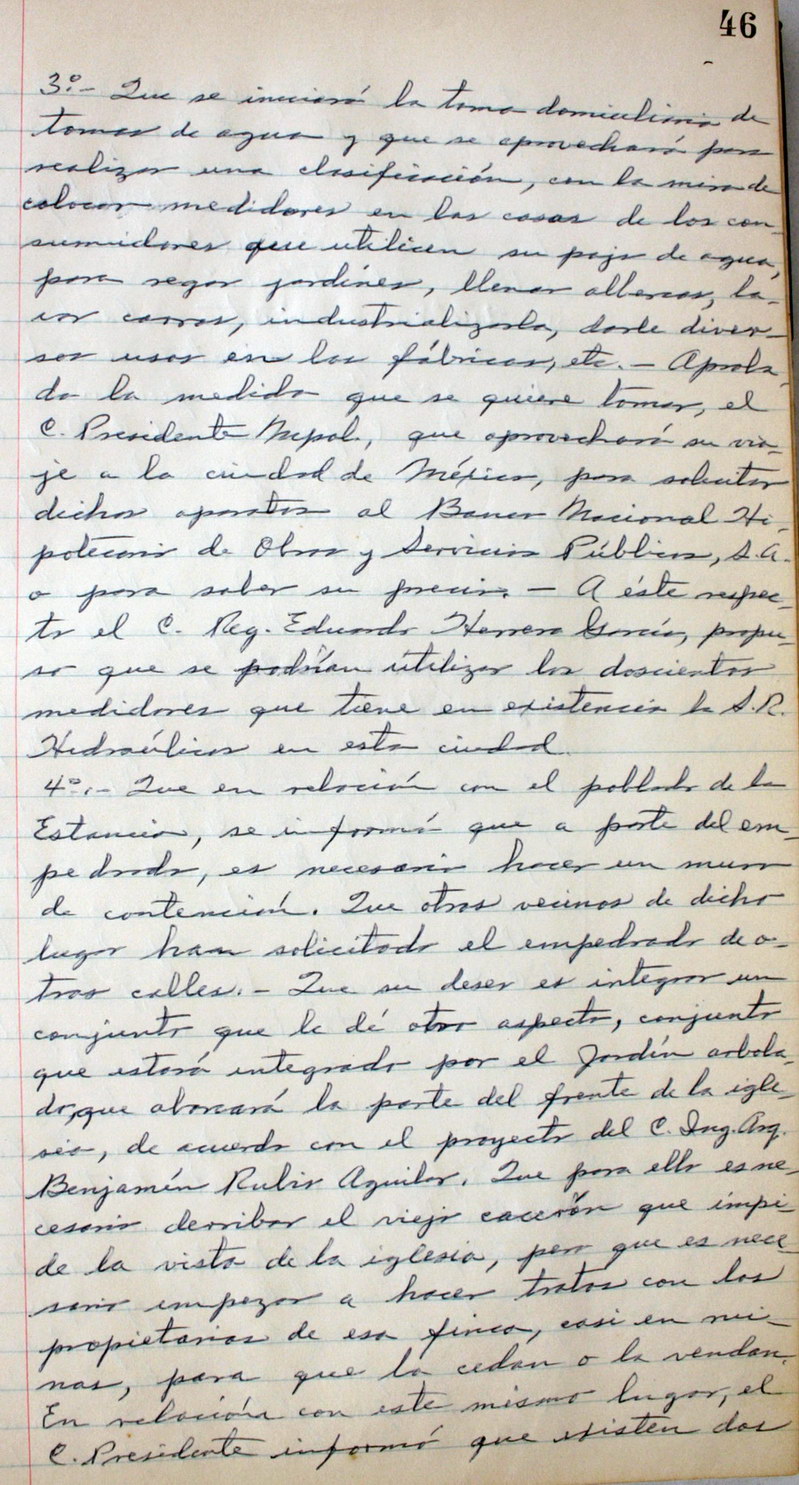 46
3º.- Que se iniciará la toma domiciliaria de
tomas de agua y que se aprovechará para
realizar una clasificación, con la mira de
colocar medidores en las casas de los con-
sumidores que utilicen su paja de agua,
para regar jardines, llenar albercas, la-
var carros, industrializarla, darle diver-
sos usos en las fábricas, etc. - Aproba-
da la medida que se quiere tomar, el
C. Presidente Mupal., que aprovechará su via-
je a la ciudad de México, para solicitar
dichos aparatos al Banco Nacional Hi-
potecario de Obras y Servicios Públicos, S.A.
o para saber su precio. - A éste respec-
to el C. Reg. Eduardo Herrera García, propu-
so que se podrían utilizar los doscientos
medidores que tiene en existencia la S.R.
Hidraúlicos en esta ciudad.
4º.- Que en relación con el poblado de la
Estancia, se informó que a parte del em-
pedrado, es necesario hacer un muro
de contención. Que otros vecinos de dicho
lugar han solicitado el empedrado de o-
tras calles. - Que su deseo es integrar un
conjunto que le dé otro aspecto, conjunto
que estará integrado por el Jardín arbola-
do, que abarcará la parte del frente de la igle-
sia, de acuerdo con el proyecto del C. Ing. Arq.
Benjamín Rubio Aguilar. Que para ello es ne-
cesario derribar el viejo cacerón que impi-
de la vista de la iglesia, pero que es nece-
sario empezar a hacer tratos con los
propietarios de esa finca, casi en rui-
nas, para que la cedan o la vendan.
En relación con este mismo lugar, el
C. Presidente informó que existen dos